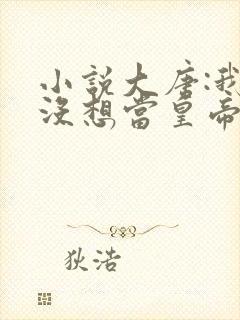 小説大唐:我
沒想當皇帝
狄浩